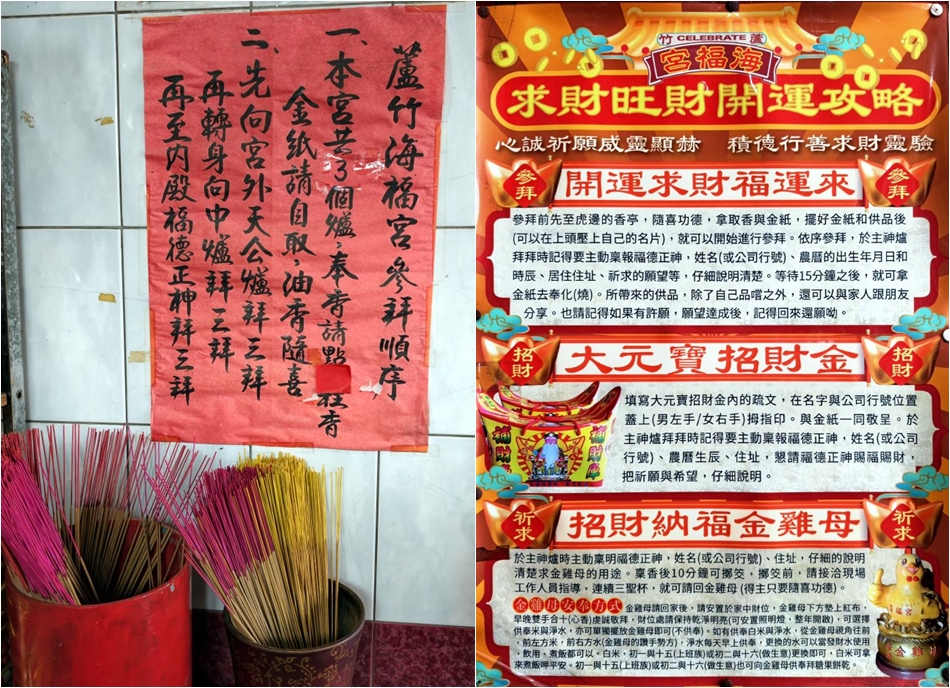 蘆竹海福宮參拜順序
一、本宮共3個爐，奉香請點 柱香
金紙請自取，油香隨喜
二、先向宮外天公爐拜三拜
再轉身向中爐拜三拜
再至內殿福德正神拜三拜
竹 CELEBRATE 蘆
宮福海
求財旺財開運攻略
心誠祈願威靈顯赫 積德行善求財靈驗
參拜
開運求財福運來
參拜
參拜前先至虎邊的香亭，隨喜功德，拿取香與金紙，擺好金紙和供品後
(可以在上頭壓上自己的名片)，就可以開始進行參拜。依序參拜，於主神爐
拜拜時記得要主動稟報福德正神，姓名(或公司行號)、農曆的出生年月日和
時辰、居住住址、祈求的願望等，仔細說明清楚。等待15分鐘之後，就可拿
金紙去奉化(燒)。所帶來的供品，除了自己品嚐之外，還可以與家人跟朋友
分享。也請記得如果有許願，願望達成後，記得回來還願呦。
招財
大元寶招財金
招財
填寫大元寶招財金內的疏文，在名字與公司行號位置
蓋上(男左手/女右手)拇指印。與金紙一同敬呈。於
主神爐拜拜時記得要主動稟報福德正神，姓名(或公司
行號)、農曆生辰、住址，懇請福德正神賜福賜財，
把祈願與希望，仔細說明。
祈求
招財納福金雞母
祈求
於主神爐時主動稟明福德正神，姓名(或公司行號)、住址，仔細的說明
清楚求金雞母的用途。稟香後10分鐘可擲筊，擲筊前，請接洽現場
工作人員指導，連續三聖杯，就可請回金雞母 (得主只要隨喜功德)。
金雞母安奉方式 金雞母請回家後，請安置於家中財位，金雞母下方墊上紅布，
早晚雙手合十(心香)虔誠敬拜，財位處請保持乾淨明亮(可安置照明燈，整年開啟)，可選擇
供奉米與淨水，亦可單獨擺放金雞母即可(不供奉)。如有供奉白米與淨水，從金雞母視角往前
，前左方米，前右方水(金雞母的讚手勢方)，淨水每天早上供奉，更換的水可以當發財水使用
，飲用、煮飯都可以。白米，初一與十五(上班族)或初二與十六(做生意)更換即可，白米可拿
來煮飯呷平安。初一與十五(上班族)或初二與十六(做生意)也可向金雞母供奉拜糖果餅乾。